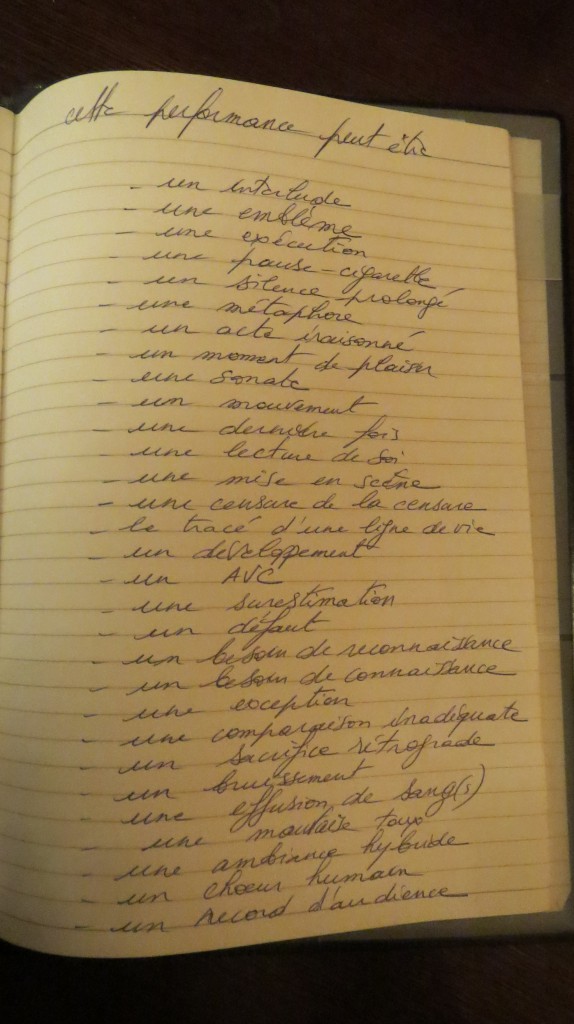 cette performance peut être
- un interlude
- une emblème
- une exécution
- une pause-cigarette
- un silence prolongé
- une métaphore
- un acte iraisonné
- un moment de plaisir
- une sonate
- un mouvement
- une dernière fois
- une lecture de soi
- une mise en scène
- une censure de la censure
- le tracé d'une ligne de vie
- un développement
- un AVC
- une surestimation
- un défaut
- un besoin de reconnaissance
- un besoin de connaissance
- une exception
- une comparaison inadéquate
- un sacrifice rétrograde
- un bruissement
- une effusion de sang(s)
- une mauvaise toux
- une ambiance hybride
- un choeur humain
- un record d'audience